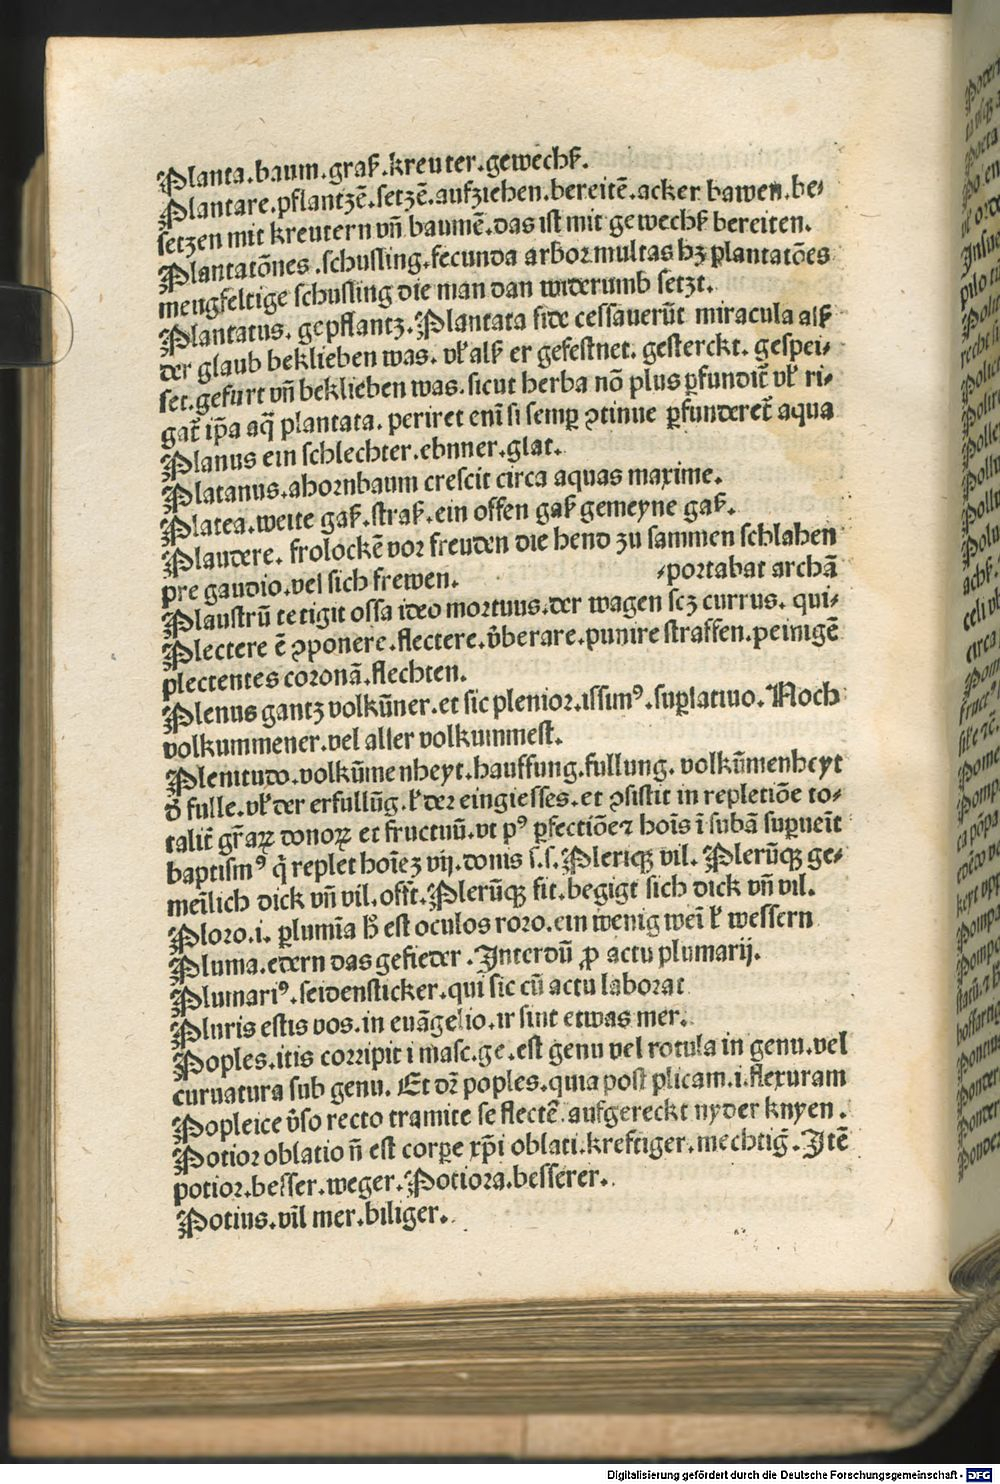 Planta.baum.graß.kreuter.gewechß.
Plantare.pflantzē.setzē.aufziehen.bereitē.acker bawen.be⸗
setzen mit kreutern vñ baumē.das ist mit gewechß bereiten.
Plantatōnes.schusling.fecunda arbor multas hꝫ plantatōes
mengfeltige schusling die man dan widerumb setzt.
Plantatus. gepflantz. Plantata fide cessauerūt miracula alß
der glaub beklieben was. vł alß er gefestnet. gesterckt. gespei⸗
set.gefurt vñ beklieben was. sicut herba nō plus ꝑfundit̄ vł ri⸗
gat̄ ip̄a aq̄ plantata. periret enī si semꝑ ꝯtinue ꝑfunderet̄ aqua
Planus ein schlechter.ebnner.glat.
Platanus.ahornbaum crescit circa aquas maxime.
Platea.weite gaß.straß.ein offen gaß gemeyne gaß.
Plaudere. frolockē vor freuden die hend zu sammen schlahen
pre gaudio.vel sich frewen. ⸗portabat archā
Plaustrū tetigit ossa ideo mortuus.der wagen scꝫ currus. qui⸗
Plectere ē ꝯponere.flectere.v̄berare.punire straffen.peinigē
plectentes coronā.flechten.
Plenus gantz volkūner.et sic plenior.issimꝰ.suꝑlatiuo. Noch
volkummener.vel aller volkummest.
Plenitudo.volkūmenheyt.hauffung.fullung. volkūmenheyt
d̄ fulle.vł der erfullūg.ł der eingiesses.et ꝯsistit in repletiōe to⸗
talit̄ gr̄aꝝ donoꝝ et fructuū.vt pꝰ ꝑfectiōeꝫ hoīs ī subā suꝑueīt
baptismꝰ q̄ replet hoīeꝫ vij.donis s.s. Pleriqꝫ vil. Plerūqꝫ ge⸗
meīlich dick vñ vil.offt̄. Plerūqꝫ fit.begigt sich dick vñ vil.
Ploro.i. ꝑlumīa ħ est oculos roro.ein wenig weī ł wessern
Pluma.edern das gefieder. Interdū ꝓ actu plumarij.
Plumariꝰ.seidensticker.qui sic cū actu laborat
Pluris estis vos.in euāgelio.ir sint etwas mer.
Poples.itis corripit i masc.ge.est genu vel rotula in genu.vel
curuatura sub genu. Et dr̄ poples.quia post plicam.i.flexuram
Popleice v̄so recto tramite se flectē.aufgereckt nyder knyen.
Potior oblatio n̄ est corꝑe xp̄i oblati.kreftiger.mechtiḡ. Itē
potior.besser.weger. Potiora.besserer.
Potius.vīl mer.biliger.
Digitalisierung gefördert durch die Deutsche Forschungsgemeinschaft - DFG